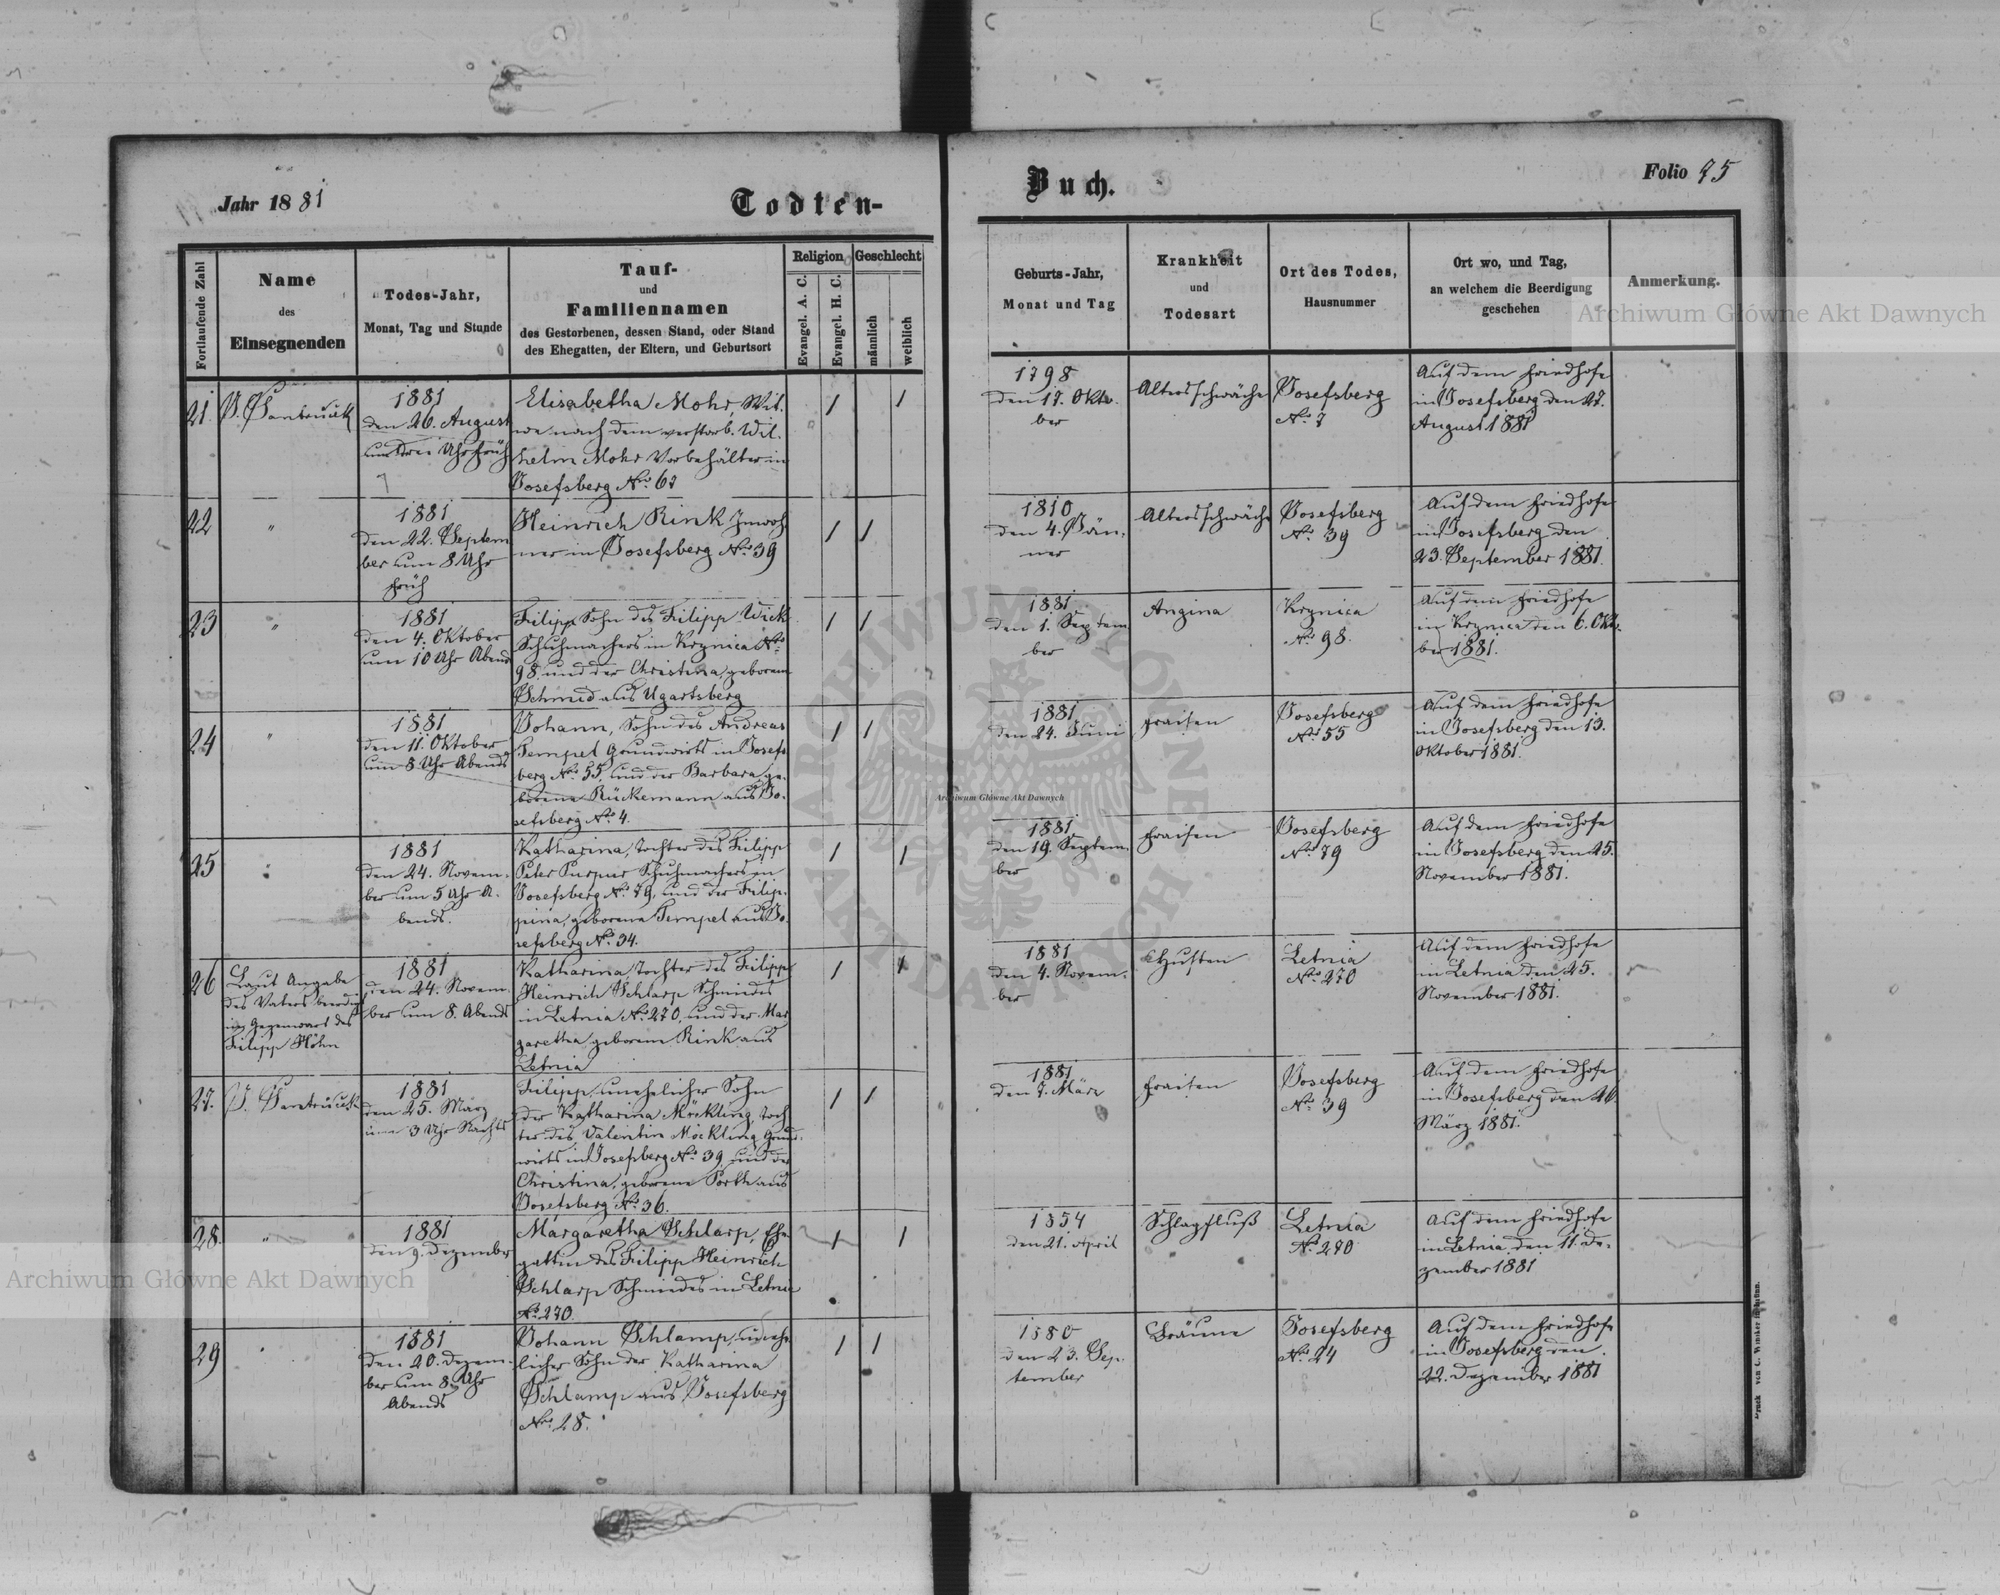 Jahr 1881
Todten-
Buch.
Folio 25
Fortlaufende Zahl
Name
des
Einsegnenden
Todes-Jahr,
Monat, Tag und Stunde
Tauf-
und
Familiennamen
des Gestorbenen, dessen Stand, oder Stand
des Ehegatten, der Eltern, und Geburtsort
Religion
Evangel. A. C.
Evangel. H. C.
Geschlecht
männlich
weiblich
Geburts-Jahr,
Monat und Tag
Krankheit
und
Todesart
Ort des Todes,
Hausnummer
Ort wo, und Tag,
an welchem die Beerdigung
geschehen
Anmerkung.
21.
1881
den 26. August
um drei Uhr früh
Elisabetha Mohr, Wit-
we nach dem verstorb. Wil-
helm Mohr Vorbehälter in
Josefsberg No. 67
/
/
1798
den 17. Okto-
ber
Altersschwäche
Josefsberg
No. 7
Auf dem Friedhofe
in Josefsberg den 27.
August 1881
22
"
1881
den 22. Septem
ber um 8 Uhr
früh
Heinrich Rink Inwoh-
ner in Josefsberg No. 39
/
/
1810
den 4. Jän-
ner
Altersschwäche
Josefsberg
No. 39
Auf dem Friedhofe
in Josefsberg den
23. September 1881.
23
"
1881
den 4. Oktober
um 10 Uhr Abend
Filipp Sohn des Filipp Wick
Schuhmachers in Krynica No.
98. und der Christina, geborene
Schmid aus Ugartsberg
/
/
1881
den 1. Septem
ber
Angina
Krynica
No. 98.
Auf dem Friedhofe
in Krynica den 6. Okto-
ber 1881.
24
"
1881
den 11. Oktober
um 8 Uhr Abends
Johann, Sohn des Andreas
Tempel Grundwirts in Josefs
berg No. 55, und der Barbara, ge-
borene Rückemann aus Jo-
sefsberg No. 4.
/
/
1881
den 24. Juni
Fraisen
Josefsberg
No. 55
Auf dem Friedhofe
in Josefsberg den 13.
Oktober 1881.
25
"
1881
den 24. Novem-
ber um 5 Uhr A-
bends.
Katharina, Tochter des Filipp
Peter Purpur Schuhmachers in
Josefsberg No. 79, und der Filip-
pina, geborene Tempel aus Jo-
sefsberg No. 34.
/
/
1881
den 19. Septem-
ber
Fraisen
Josefsberg
No. 79
Auf dem Friedhofe
in Josefsberg den 25.
November 1881.
26
Laut Angabe
des Vaters beerdigt
in Gegenwart des
Filipp Höhn
1881
den 24. Novem-
ber um 8. Abends
Katharina, Tochter des Filipp
Heinrich Schlarp Schmiedes
in Letnia No. 270, und der Mar
garetha, geborene Rink aus
Letnia
/
/
1881
den 4. Novem-
ber
Husten
Letnia
No. 270
Auf dem Friedhofe
in Letnia den 25.
November 1881.
27.
1881
den 25. März
um 3 Uhr Nachts
Filipp, unehelicher Sohn
der Katharina Möckling, Toch
ter des Valentin Möckling Grund-
wirts in Josefsberg No. 39, und der
Christina, geborene Porth aus
Josefsberg No. 36.
/
/
1881
den 7. März
Fraisen
Josefsberg
No. 39
Auf dem Friedhofe
in Josefsberg den 26.
März 1881.
28.
"
1881
den 9. Dezember
Margaretha Schlarp, Ehe-
gattin des Filipp Heinrich
Schlarp Schmiedes in Letnia
No. 270.
/
/
1854
den 21. April
Schlagfluß
Letnia
No. 270
Auf dem Friedhofe
in Letnia, den 11. De-
zember 1881
29
1881
den 20. Dezem-
ber um 8 Uhr
Abends
Johann Schlamp, unehe-
licher Sohn der Katharina
Schlamp aus Josefsberg
No. 28.
/
/
1880
den 23. Sep-
tember
Bräune
Josefsberg
No. 24
Auf dem Friedhofe
in Josefsberg den
22. Dezember 1881
Druck von C. Winiker in Brünn.
Archiwum Główne Akt Dawnych
Archiwum Główne Akt Dawnych
Archiwum Główne Akt Dawnych
ARCHIWUM GŁÓWNE
AKT DAWNYCH